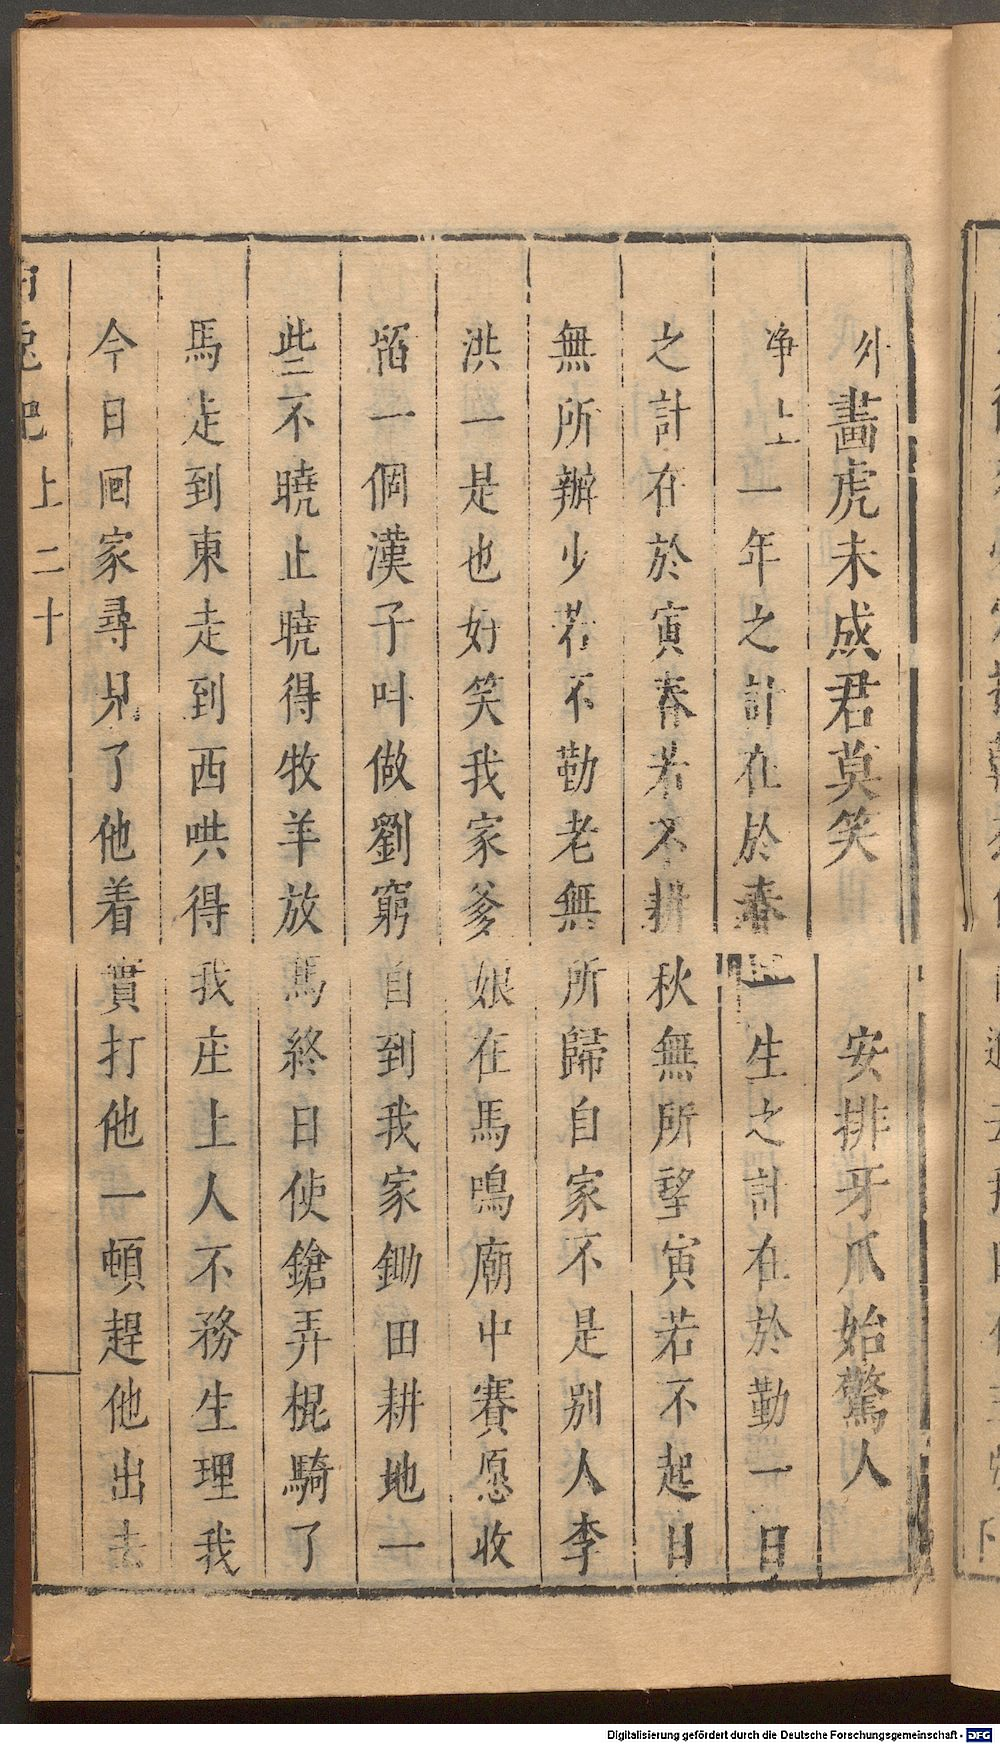 外畵虎未成君莫笑　安排牙爪始驚人
净上一年之計在於春一生之計在於勤一日
之計在於寅春若不耕秋無所望寅若不起日
無所辦少若不勤老無所歸自家不是别人李
洪一是也好笑我家爹娘在馬鳴廟中賽愿收
畱一個漢子叫做劉窮自到我家鋤田耕地一
些不曉止曉得牧羊放馬終日使鎗弄棍騎了
馬走到東走到西哄得我庄上人不務生理我
今日回家尋見了他着實打他一頓趕他出去
兎記　上　二十
Digitalisierung gefördert durch die Deutsche Forschungsgemeinschaft - DFG